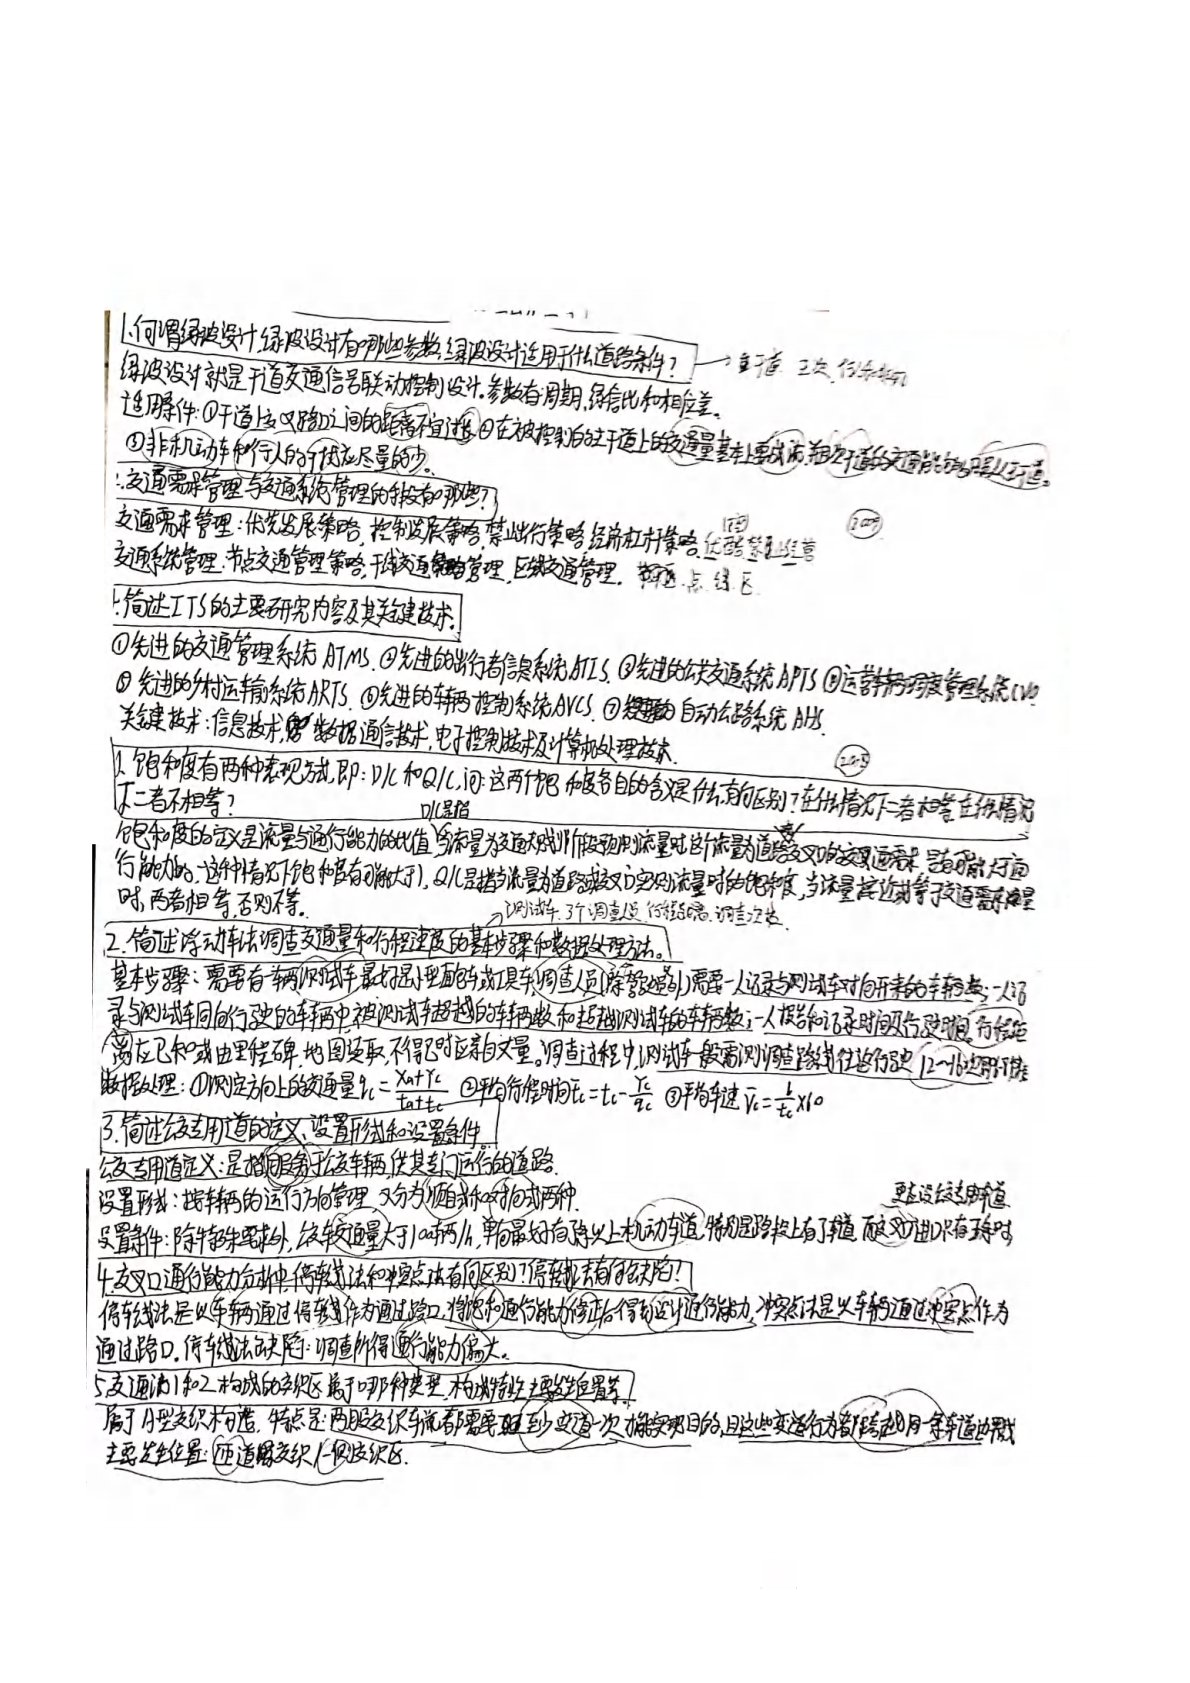 1.何谓绿波设计,绿波设计有哪些参数,绿波设计适用于什么道路条件?
绿波设计就是干道交通信号联动控制设计。参数有:周期,绿信比和相位差。
适用条件:①干道上交叉路口之间的距离不宜过长②在被控制的主干道上的交通量基本上要成流,
③非机动车和行人的干扰应尽量的少。
交通需求管理与交通系统管理的手段有哪些?
交通需求管理:优先发展策略,控制发展策略,禁止出行策略,经济杠杆策略
交通系统管理:节点交通管理策略,干线交通管理,区域交通管理。 点 线 区
简述ITS的主要研究内容及其关键技术。
①先进的交通管理系统 ATMS.②先进的出行者信息系统ATIS.③先进的公共交通系统APTS④运营车辆调度管理系统CVO
⑤先进的乡村运输系统ARTS.⑥先进的车辆控制系统AVCS.⑦自动公路系统 AHS.
关键技术:信息技术,数据通信技术,电子控制技术及计算机处理技术.
1.饱和度有两种表现方式,即:D/C和Q/C,问:这两个饱和度各自的含义是什么,有何区别?在什么情况下二者相等,在什么情况
下二者不相等?
D/C是指
饱和度的定义是流量与通行能力的比值,当流量为交通规划阶段预测流量时,这个流量为道路交叉口的交通需求,是有可能大于通
行能力的,这种情况下饱和度有可能大于1,Q/C是指当流量为道路或交叉口实测流量时的饱和度,当流量接近或等于交通需求流量
时,两者相等,否则不等。
测试车 3个调查员 行程距离 调查次数
2.简述浮动车法调查交通量和行程速度的基本步骤和数据处理方法。
基本步骤:需要有一辆测试车,最好是小型面包车或工具车,调查人员(除驾驶员外)需要一人记录与测试车对向开来的车辆数;一人记
录与测试车同向行驶的车辆中,被测试车超越的车辆数和超越测试车的车辆数;一人报告和记录时间及行驶时间,行程距
离应已知或由里程碑、地图读取,不得已时应亲自丈量。调查过程中,测试车一般需测调查路线往返行驶12~16次
数据处理:①测定方向上的交通量qc=(Xa+Yc)/(ta+tc) ②平均行程时间t̄c=tc-Yc/qc ③平均车速v̄c=l/t̄c×60
3.简述公交专用道的定义、设置形式和设置条件
公交专用道定义:是指用服务于公交车辆,供其专门运行的道路.
设置形式:按车辆的运行方向管理,又分为顺向式和对向式两种.
设置条件:除特殊要求外,公交车交通量大于100辆/h,单向最好有以上机动车道,
4.交叉口通行能力分析中,停车线法和冲突点法有何区别?停车线法有何缺陷?
停车线法是以车辆通过停车线作为通过路口,将饱和通行能力修正后得到设计通行能力,冲突点法是以车辆通过冲突点作为
通过路口。停车线法的缺陷:调查所得通行能力偏大。
5.交通流1和2构成的交织区属于哪种类型,构成特性,主要发生位置等?
属于A型交织构造,特点是:两股交织车流都需要至少变道一次,才能实现目的,且这些变道行为都跨越同一条车道边界线
主要发生位置:匝道交织/一侧交织区.